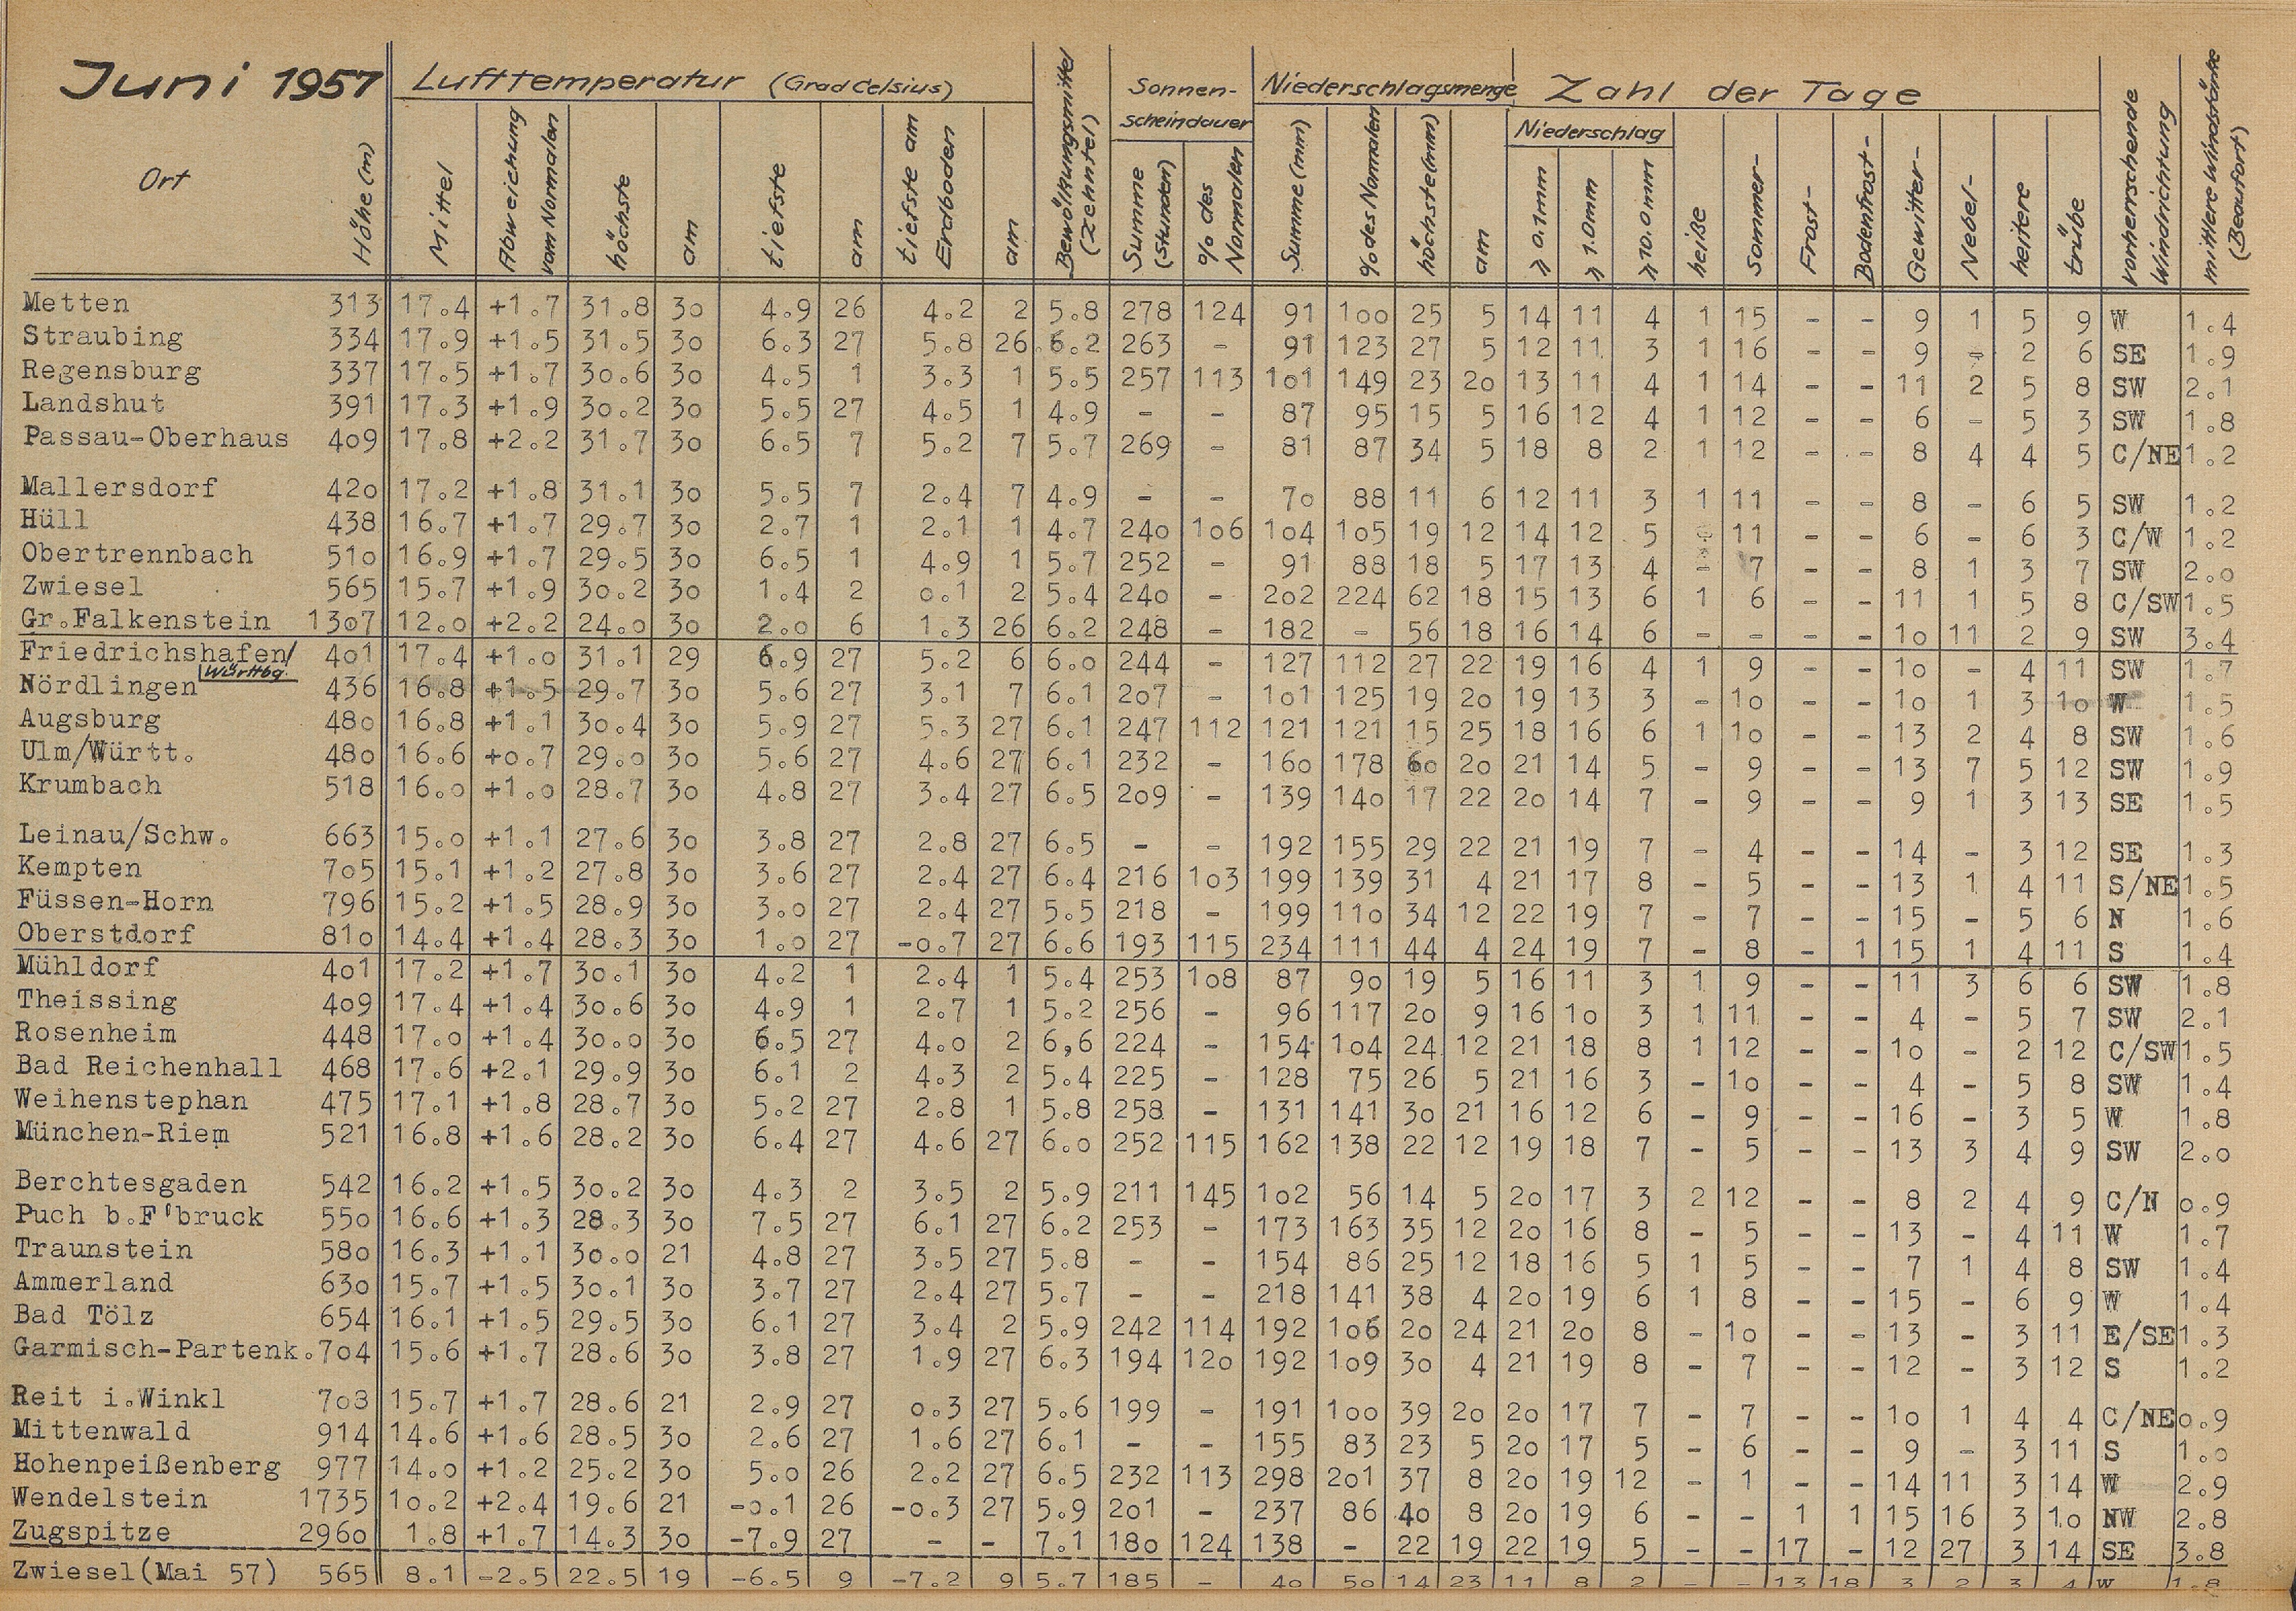 Juni 1957 Lufttemperatur (Grad Celsius) Bewölkungsmittel (Zehntel) Sonnen-scheindauer Niederschlagsmenge Zahl der Tage vorherrschende Windrichtung mittlere Windstärke (Beaufort)
Niederschlag
Ort Höhe (m) Mittel Abweichung vom Normalen höchste am tiefste am tiefste am Erdboden am Summe (Stunden) % des Normalen Summe (mm) % des Normalen höchste (mm) am ≥ 0.1mm ≥ 1.0mm ≥ 10.0mm heiße Sommer- Frost- Bodenfrost- Gewitter- Nebel- heitere trübe
Metten 313 17.4 +1.7 31.8 30 4.9 26 4.2 2 5.8 278 124 91 100 25 5 14 11 4 1 15 - - 9 1 5 9 W 1.4
Straubing 334 17.9 +1.5 31.5 30 6.3 27 5.8 26 6.2 263 - 91 123 27 5 12 11 3 1 16 - - 9 - 2 6 SE 1.9
Regensburg 337 17.5 +1.7 30.6 30 4.5 1 3.3 1 5.5 257 113 101 149 23 20 13 11 4 1 14 - - 11 2 5 8 SW 2.1
Landshut 391 17.3 +1.9 30.2 30 5.5 27 4.5 1 4.9 - - 87 95 15 5 16 12 4 1 12 - - 6 - 5 3 SW 1.8
Passau-Oberhaus 409 17.8 +2.2 31.7 30 6.5 7 5.2 7 5.7 269 - 81 87 34 5 18 8 2 1 12 - - 8 4 4 5 C/NE 1.2
Mallersdorf 420 17.2 +1.8 31.1 30 5.5 7 2.4 7 4.9 - - 70 88 11 6 12 11 3 1 11 - - 8 - 6 5 SW 1.2
Hüll 438 16.7 +1.7 29.7 30 2.7 1 2.1 1 4.7 240 106 104 105 19 12 14 12 5 - 11 - - 6 - 6 3 C/W 1.2
Obertrennbach 510 16.9 +1.7 29.5 30 6.5 1 4.9 1 5.7 252 - 91 88 18 5 17 13 4 - 7 - - 8 1 3 7 SW 2.0
Zwiesel 565 15.7 +1.9 30.2 30 1.4 2 0.1 2 5.4 240 - 202 224 62 18 15 13 6 1 6 - - 11 1 5 8 C/SW 1.5
Gr.Falkenstein 1307 12.0 +2.2 24.0 30 2.0 6 1.3 26 6.2 248 - 182 - 56 18 16 14 6 - - - - 10 11 2 9 SW 3.4
Friedrichshafen/ 401 17.4 +1.0 31.1 29 6.9 27 5.2 6 6.0 244 - 127 112 27 22 19 16 4 1 9 - - 10 - 4 11 SW 1.7
Württbg.
Nördlingen 436 16.8 +1.5 29.7 30 5.6 27 3.1 7 6.1 207 - 101 125 19 20 19 13 3 - 10 - - 10 1 3 10 W 1.5
Augsburg 480 16.8 +1.1 30.4 30 5.9 27 5.3 27 6.1 247 112 121 121 15 25 18 16 6 1 10 - - 13 2 4 8 SW 1.6
Ulm/Württ. 480 16.6 +0.7 29.0 30 5.6 27 4.6 27 6.1 232 - 160 178 60 20 21 14 5 - 9 - - 13 7 5 12 SW 1.9
Krumbach 518 16.0 +1.0 28.7 30 4.8 27 3.4 27 6.5 209 - 139 140 17 22 20 14 7 - 9 - - 9 1 3 13 SE 1.5
Leinau/Schw. 663 15.0 +1.1 27.6 30 3.8 27 2.8 27 6.5 - - 192 155 29 22 21 19 7 - 4 - - 14 - 3 12 SE 1.3
Kempten 705 15.1 +1.2 27.8 30 3.6 27 2.4 27 6.4 216 103 199 139 31 4 21 17 8 - 5 - - 13 1 4 11 S/NE 1.5
Füssen-Horn 796 15.2 +1.5 28.9 30 3.0 27 2.4 27 5.5 218 - 199 110 34 12 22 19 7 - 7 - - 15 - 5 6 N 1.6
Oberstdorf 810 14.4 +1.4 28.3 30 1.0 27 -0.7 27 6.6 193 115 234 111 44 4 24 19 7 - 8 - 1 15 1 4 11 S 1.4
Mühldorf 401 17.2 +1.7 30.1 30 4.2 1 2.4 1 5.4 253 108 87 90 19 5 16 11 3 1 9 - - 11 3 6 6 SW 1.8
Theissing 409 17.4 +1.4 30.6 30 4.9 1 2.7 1 5.2 256 - 96 117 20 9 16 10 3 1 11 - - 4 - 5 7 SW 2.1
Rosenheim 448 17.0 +1.4 30.0 30 6.5 27 4.0 2 6,6 224 - 154 104 24 12 21 18 8 1 12 - - 10 - 2 12 C/SW 1.5
Bad Reichenhall 468 17.6 +2.1 29.9 30 6.1 2 4.3 2 5.4 225 - 128 75 26 5 21 16 3 - 10 - - 4 - 5 8 SW 1.4
Weihenstephan 475 17.1 +1.8 28.7 30 5.2 27 2.8 1 5.8 258 - 131 141 30 21 16 12 6 - 9 - - 16 - 3 5 W 1.8
München-Riem 521 16.8 +1.6 28.2 30 6.4 27 4.6 27 6.0 252 115 162 138 22 12 19 18 7 - 5 - - 13 3 4 9 SW 2.0
Berchtesgaden 542 16.2 +1.5 30.2 30 4.3 2 3.5 2 5.9 211 145 102 56 14 5 20 17 3 2 12 - - 8 2 4 9 C/N 0.9
Puch b.F'bruck 550 16.6 +1.3 28.3 30 7.5 27 6.1 27 6.2 253 - 173 163 35 12 20 16 8 - 5 - - 13 - 4 11 W 1.7
Traunstein 580 16.3 +1.1 30.0 21 4.8 27 3.5 27 5.8 - - 154 86 25 12 18 16 5 1 5 - - 7 1 4 8 SW 1.4
Ammerland 630 15.7 +1.5 30.1 30 3.7 27 2.4 27 5.7 - - 218 141 38 4 20 19 6 1 8 - - 15 - 6 9 W 1.4
Bad Tölz 654 16.1 +1.5 29.5 30 6.1 27 3.4 2 5.9 242 114 192 106 20 24 21 20 8 - 10 - - 13 - 3 11 E/SE 1.3
Garmisch-Partenk. 704 15.6 +1.7 28.6 30 3.8 27 1.9 27 6.3 194 120 192 109 30 4 21 19 8 - 7 - - 12 - 3 12 S 1.2
Reit i.Winkl 703 15.7 +1.7 28.6 21 2.9 27 0.3 27 5.6 199 - 191 100 39 20 20 17 7 - 7 - - 10 1 4 4 C/NE 0.9
Mittenwald 914 14.6 +1.6 28.5 30 2.6 27 1.6 27 6.1 - - 155 83 23 5 20 17 5 - 6 - - 9 - 3 11 S 1.0
Hohenpeißenberg 977 14.0 +1.2 25.2 30 5.0 26 2.2 27 6.5 232 113 298 201 37 8 20 19 12 - 1 - - 14 11 3 14 W 2.9
Wendelstein 1735 10.2 +2.4 19.6 21 -0.1 26 -0.3 27 5.9 201 - 237 86 40 8 20 19 6 - - 1 1 15 16 3 10 NW 2.8
Zugspitze 2960 1.8 +1.7 14.3 30 -7.9 27 - - 7.1 180 124 138 - 22 19 22 19 5 - - 17 - 12 27 3 14 SE 3.8
Zwiesel(Mai 57) 565 8.1 -2.5 22.5 19 -6.5 9 -7.2 9 5.7 185 - 40 50 14 23 11 8 2 - - 13 18 3 2 3 4 W 1.8